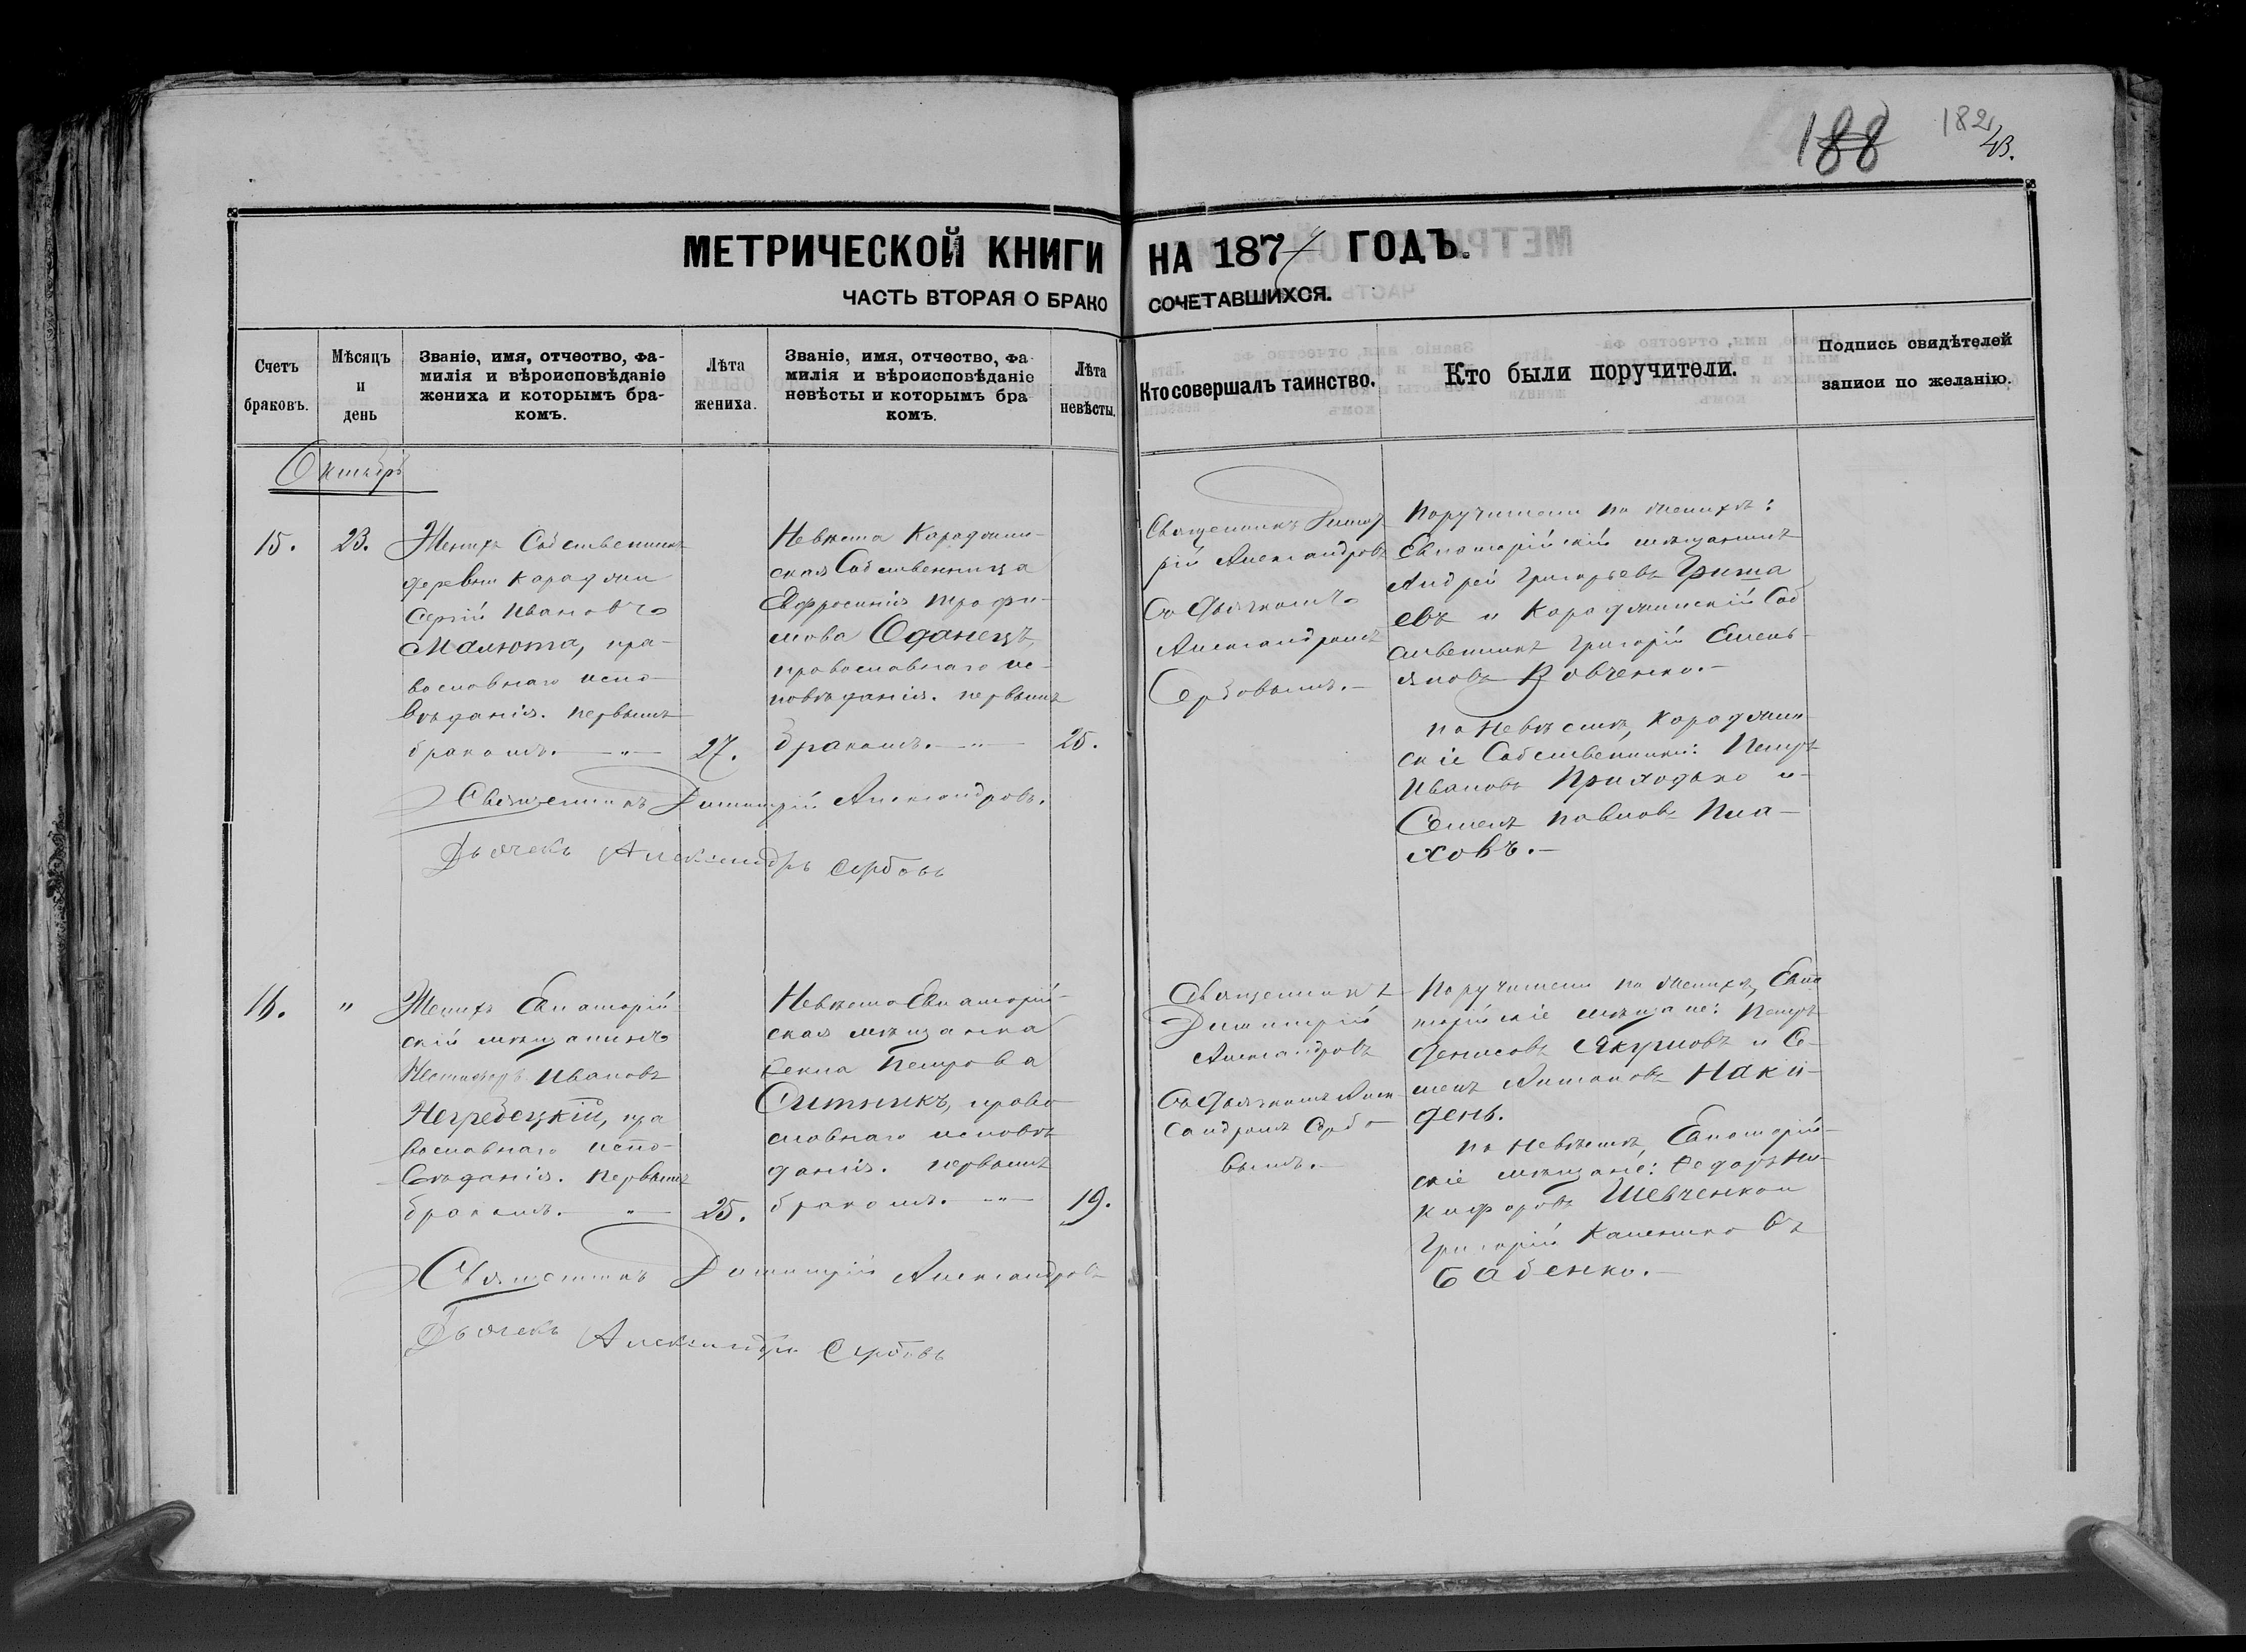 188 182
43.
МЕТРИЧЕСКОЙ КНИГИ НА 1874 ГОДЪ.
ЧАСТЬ ВТОРАЯ О БРАКО СОЧЕТАВШИХСЯ.
Счетъ
браковъ.
Мѣсяцъ
и
день
Званіе, имя, отчество, фа-
милія и вѣроисповѣданіе
жениха и которымъ бра-
комъ.
Лѣта
жениха.
Званіе, имя, отчество, фа
милія и вѣроисповѣданіе
невѣсты и которымъ бра
комъ.
Лѣта
невѣсты.
Кто совершалъ таинство.
Кто были поручители.
Подпись свидѣтелей
записи по желанію.
Октябрь
15.
23.
Женихъ Собственникъ
деревни Караджи
Сергій Ивановъ
Малюта, пра-
вославнаго испо-
вѣданія. первымъ
бракомъ. — " —
27.
Невѣста Караджин-
ская Собственница
Евфросинія Трофи-
мова Оданецъ,
православнаго ис-
повѣданія. первымъ
бракомъ. — " —
25.
Священникъ Димит
рій Александровъ
Съ Дьячкомъ
Александромъ
Сербовымъ. —
Поручители по женихѣ:
Евпаторійскій мѣщанинъ
Андрей Григорьевъ Гриша
евъ и Караджинскій Соб
ственникъ Григорій Емель
яновъ Вовченко. —
по Невѣстѣ, Караджин
скіе Собственники: Петръ
Ивановъ Приходько и
Семенъ Павловъ Пла-
ховъ. —
Священникъ Димитрій Александровъ.
Дьячекъ Александръ Сербовъ
16.
"
Женихъ Евпаторій
скій мѣщанинъ
Ивановъ
Негребецкій, пра
вославнаго испо-
вѣданія. Первымъ
бракомъ. — " —
25.
Невѣста Евпаторій-
ская мѣщанка
Ѳекла Петрова
Ситникъ, право
славнаго исповѣ
данія. первымъ
бракомъ. — " —
19.
Священникъ
Димитрій
Александровъ
Съ Дьячкомъ Алек
сандромъ Сербо
вымъ. —
Поручители по женихѣ, Евпа
торійскіе мѣщане: Петръ
Денисовъ Якуповъ и Се-
менъ Антоновъ Наки-
день.
по Невѣстѣ, Евпаторій-
скіе мѣщане: Ѳедоръ Ни-
кифоровъ Шевченко и
Григорій Калениковъ
Бабенко. —
Священникъ Димитрій Александровъ
Дьячекъ Александръ Сербовъ